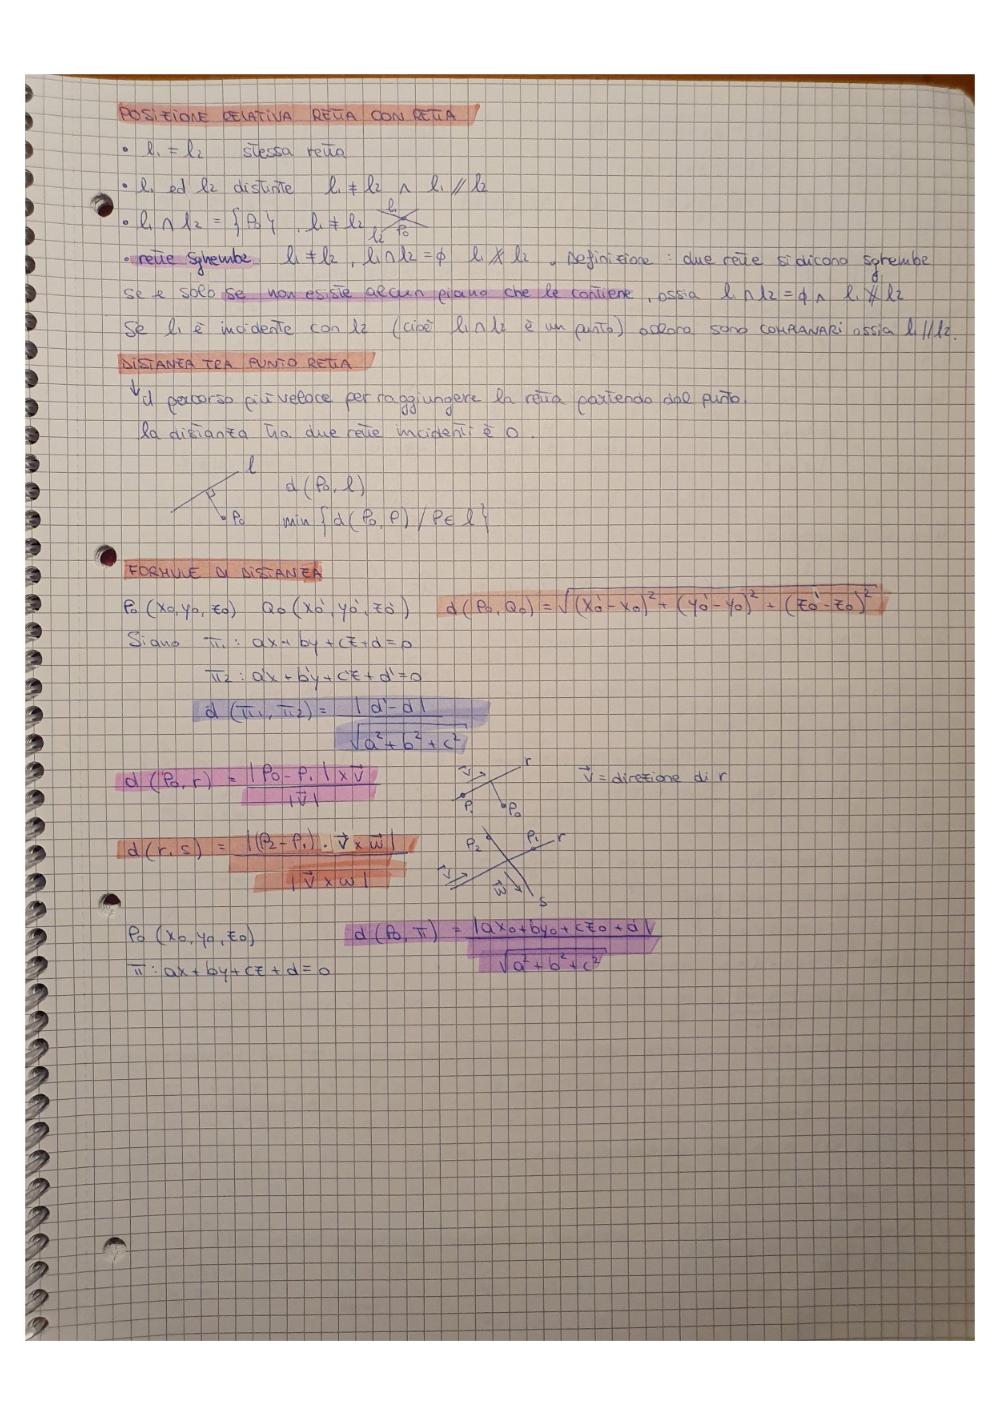 POSIZIONE RELATIVA RETTA CON RETTA
• l₁ = l₂ stessa retta
• l₁ ed l₂ distinte l₁ ≠ l₂ ∧ l₁ // l₂
• l₁ ∩ l₂ = {P₀}, l₁ ≠ l₂ l₁ l₂ P₀
• rette sghembe l₁ ≠ l₂, l₁ ∩ l₂ = ∅ l₁ ∦ l₂. Definizione: due rette si dicono sghembe
se e solo se non esiste alcun piano che le contiene, ossia l₁ ∩ l₂ = ∅ ∧ l₁ ∦ l₂
Se l₁ è incidente con l₂ (cioè l₁ ∩ l₂ è un punto) allora sono COMPLANARI ossia l₁ // l₂.
DISTANZA TRA PUNTO RETTA
↓ il percorso più veloce per raggiungere la retta partendo dal punto.
la distanza tra due rette incidenti è 0.
l
d (P₀, l)
P₀ min {d (P₀, P) / P ∈ l}
FORMULE DI DISTANZA
P₀ (x₀, y₀, z₀) Q₀ (x₀', y₀', z₀') d (P₀, Q₀) = √(x₀' - x₀)² + (y₀' - y₀)² + (z₀' - z₀)²
Siano π₁: ax + by + cz + d = 0
π₂: a'x + b'y + c'z + d' = 0
d (π₁, π₂) = |d' - d| / √a² + b² + c²
d (P₀, r) = |P₀ - P₁| × v⃗ / |v⃗| v⃗ r P₁ P₀ v⃗ = direzione di r
d (r, s) = |(P₂ - P₁) · v⃗ × w⃗| / |v⃗ × w| P₂ P₁ r v⃗ w⃗ s
P₀ (x₀, y₀, z₀) d (P₀, π) = |ax₀ + by₀ + cz₀ + d| / √a² + b² + c²
π: ax + by + cz + d = 0